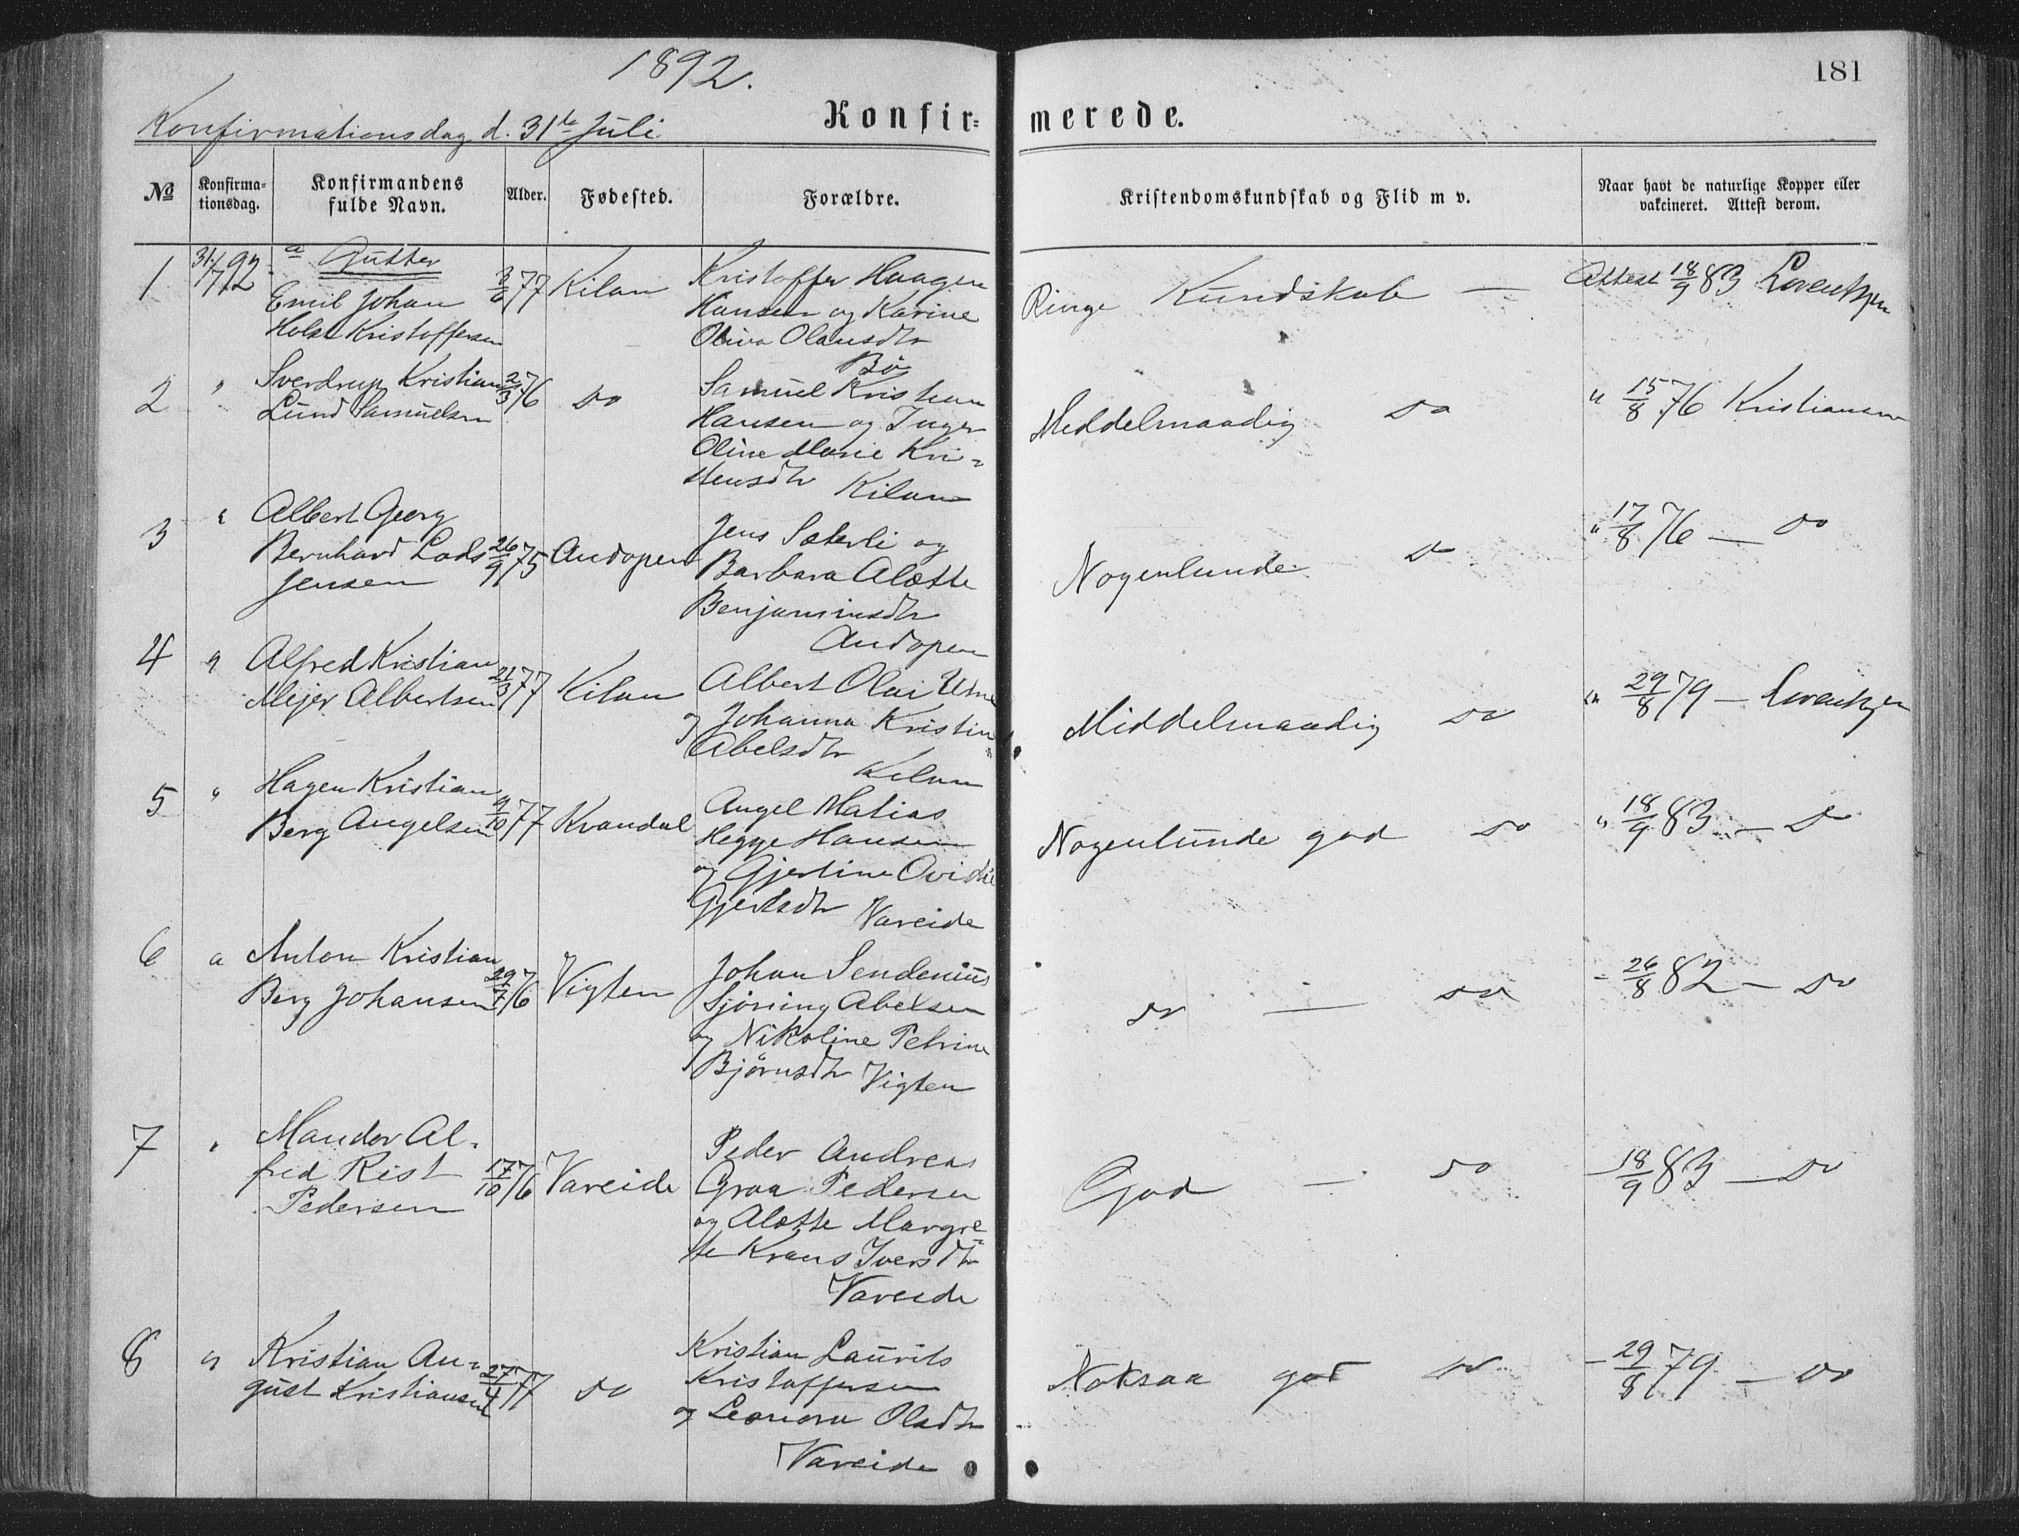 1892.
181
Konfirmationsdag d. 31te Juli
Konfir= merede.
№
Konfirma-
tionsdag.
Konfirmandens
fulde Navn.
Alder.
Fødested.
Forældre.
Kristendomskundskab og Flid m v.
Naar havt de naturlige Kopper eller
vakcineret. Attest derom.
1 31/7 92 a Gutter
Emil Johan
Kristoffersen
2/6 77 Kilan
Kristoffer Haagen
Hansen og Karine
Oliva Olausdtr
Bø
Ringe Kundskab — Attest 18/9 83
2 " Sverdrup Kristian
Lund Samuelsen
2/3 76 do
Samuel Kristian
Hansen og Inger
Oline Marie Kri-
stensdtr Kilan
Meddelmaadig do " 15/8 76 Kristiansen
3 " Albert Georg
Bernhard Lads
Jensen
26/9 75 Andopen
Jens Sæterli og
Barbara Alette
Benjaminsdtr
Andopen
Nogenlunde do " 17/8 76 — do
4 " Alfred Kristian
Mejer Albertsen
21/3 77 Kilan
Albert Olai
og Johanna Kristine
Abelsdtr
Kilan
Middelmaadig do " 29/8 79 —
5 " Hagen Kristian
Berg Angelsen
9/10 77 Kvandal
Angel Matias
Hegge Hansen
og Gjertine
Gjertsdtr Vareide
Nogenlunde god do " 18/9 83 — do
6 a Anton Kristian
Berg Johansen
29/7 76 Vigten
Johan Sendenius
Sjøning Abelsen
og Nikoline Petrine
Bjørnsdtr Vigten
do — do - 26/8 82 — do
7 " Mandor Al-
fred Rist
Pedersen
17/10 76 Vareide
Peder Andreas
Graa Pedersen
og Alette Margre-
te Krans Iversdtr
Vareide
God — do — 18/9 83 — do
8 " Kristian Au-
gust Kristiansen
27/4 77 do
Kristian Laurits
Kristoffersen
og Leonora Olsdtr
Vareide
Noksaa god do — 29/8 79 — do